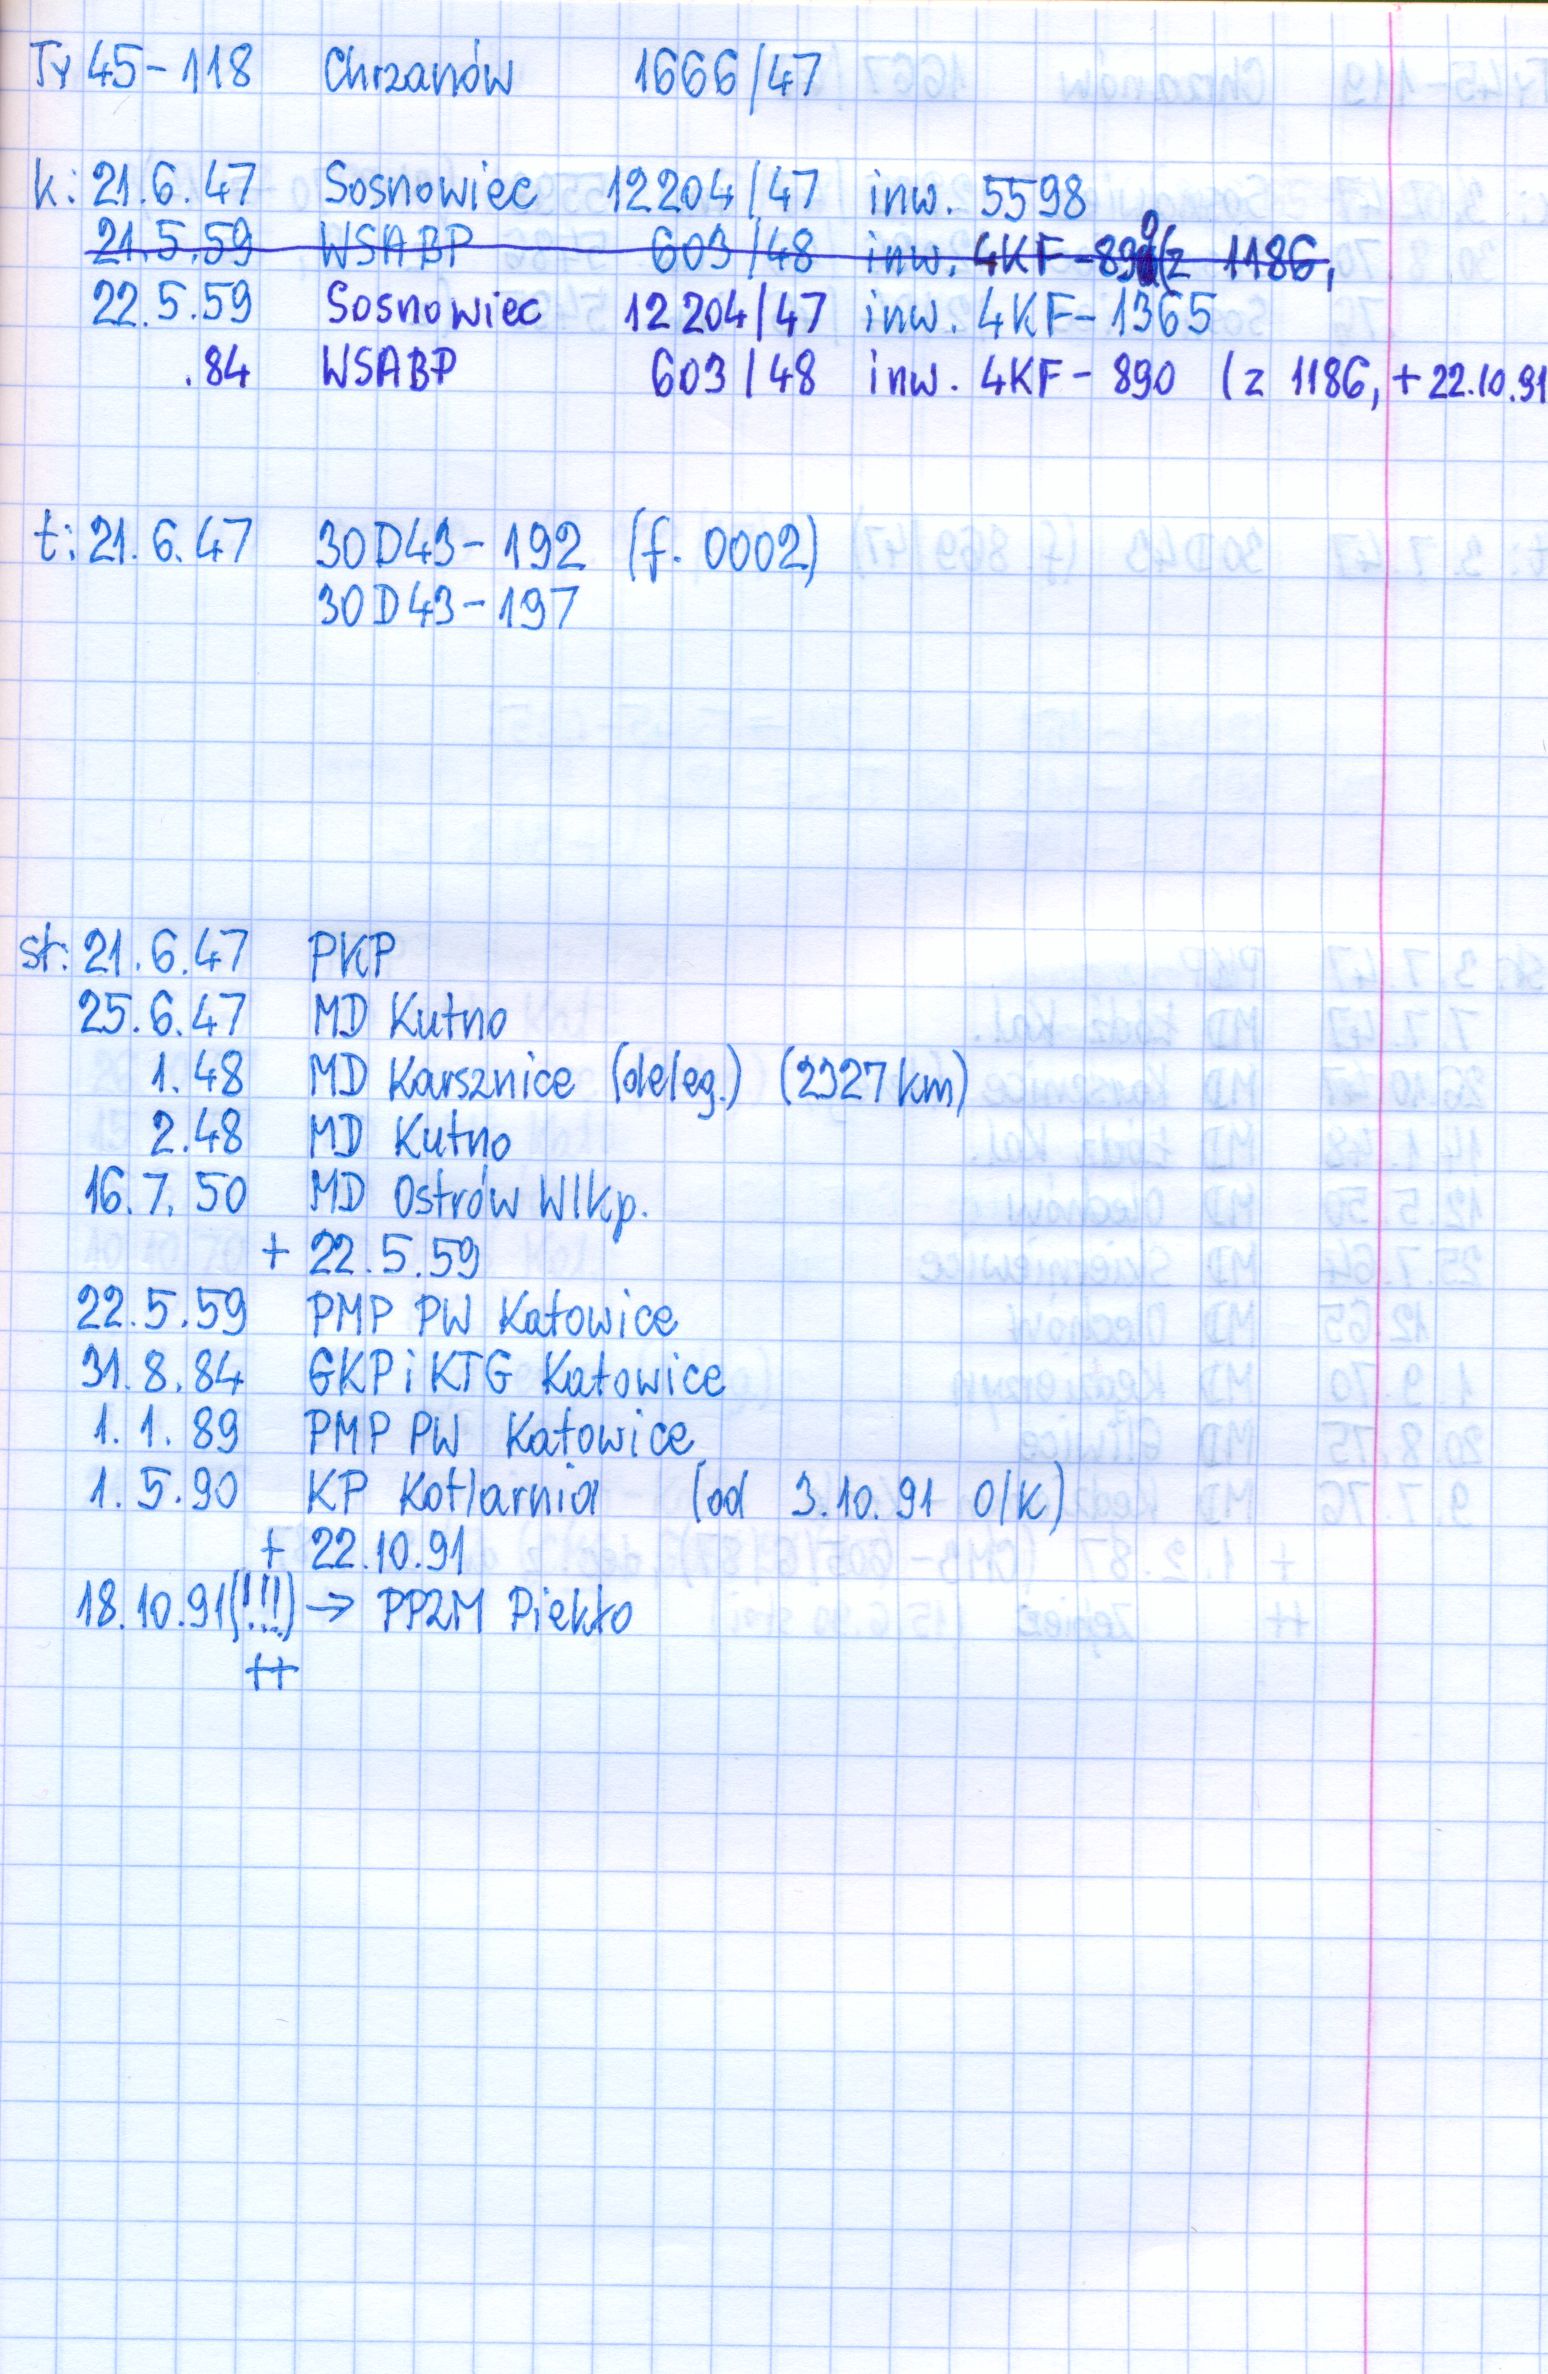 Ty 45-118 Chrzanów 1666/47
k: 21.6.47 Sosnowiec 12204/47 inw. 5598
21.5.59 WSABP 603/48 inw. 4KF-890 (z 1186,
22.5.59 Sosnowiec 12204/47 inw. 4KF-1365
.84 WSABP 603/48 inw. 4KF-890 (z 1186, + 22.10.91
t: 21.6.47 30D43-192 (f. 0002)
30D43-197
st: 21.6.47 PKP
25.6.47 MD Kutno
1.48 MD Karsznice (deleg.) (2927 km)
2.48 MD Kutno
16.7.50 MD Ostrów Wlkp.
+ 22.5.59
22.5.59 PMP PW Katowice
31.8.84 GKP i KTG Katowice
1.1.89 PMP PW Katowice
1.5.90 KP Kotlarnia (od 3.10.91 O/K)
+ 22.10.91
18.10.91(!!!) → PPZM Piekło
++